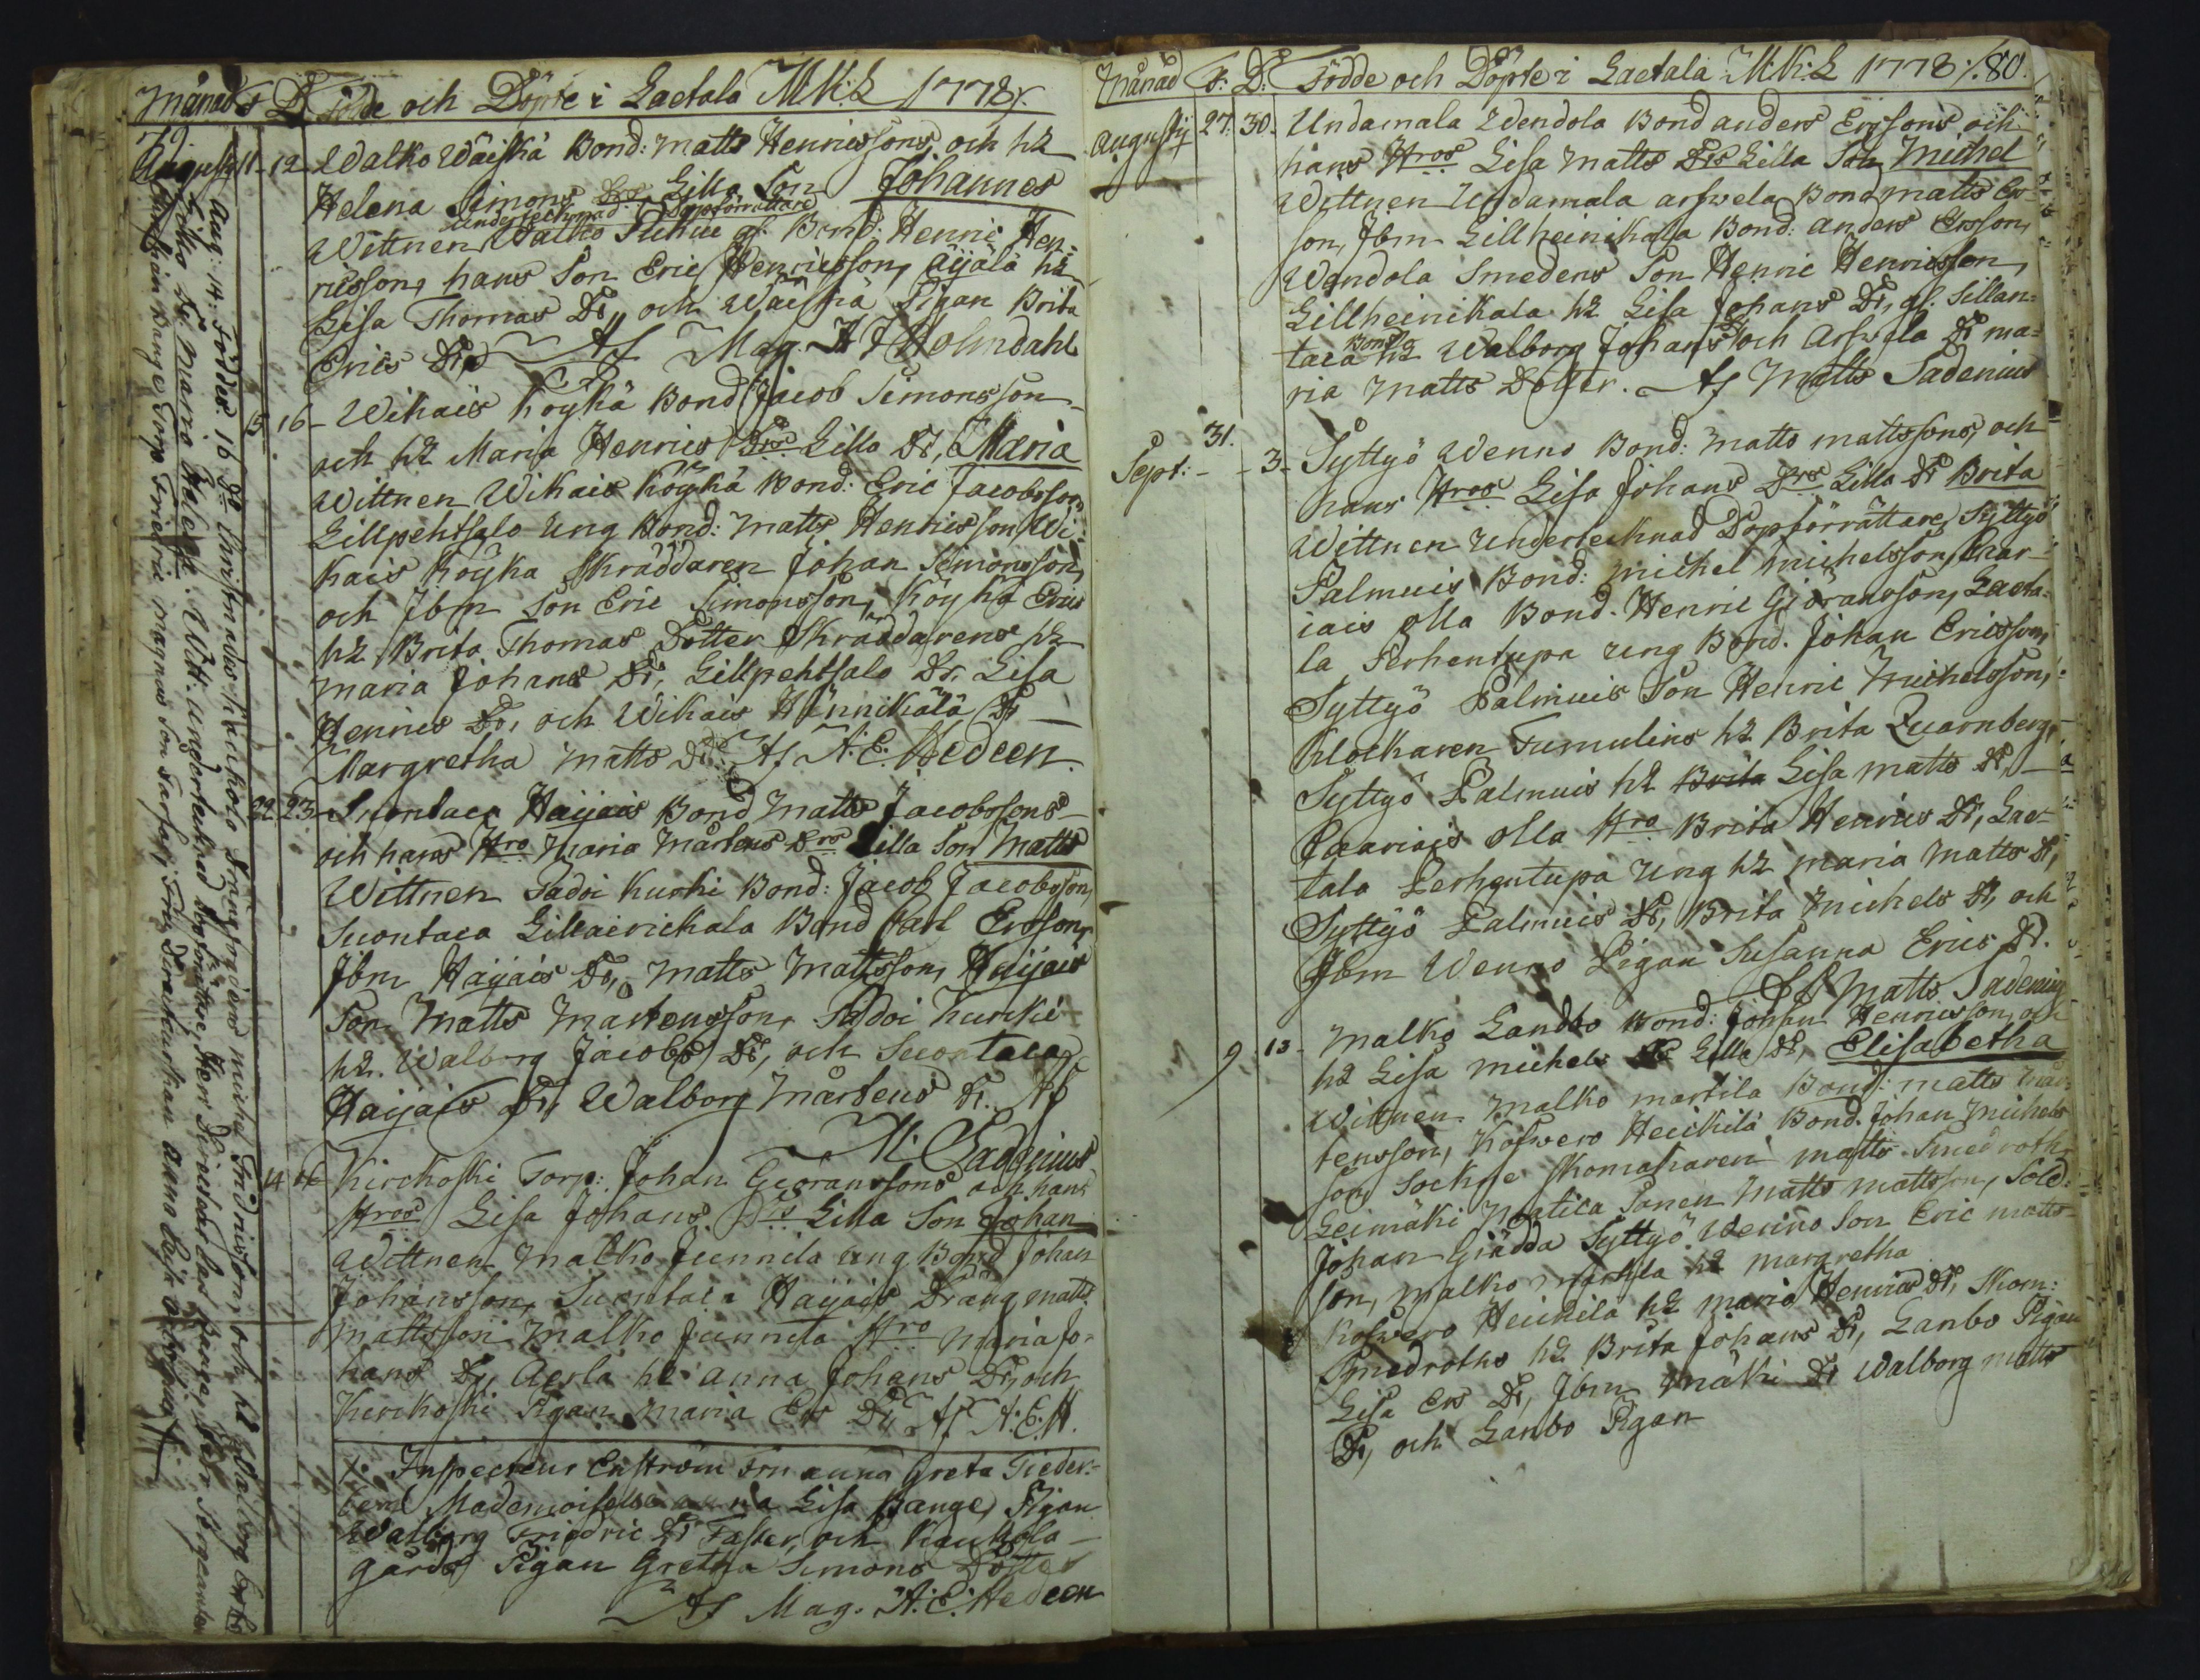 Månad F D Födde och Döpte i Laetala M:K:L 1778/.
79
Augusty 11 - 12 Walko Wäiskä Bond: Matts Henricssons, och h2
Helena Simons Drs Gilla Son Johannes
undertechnad Dopförrättare
Wittnen Walko gl. Bond: Henric Hen-
ricsson, hans Son Eric Henricsson, Äijälä h2
Lisa Thomas Dr, och Wäiskä Pigan Brita
Erics Dr. Af Mag. Holmdahl
15 16 - Wihais Köykä Bond Jacob Simonsson
och h2 Maria Henrics Drs Gilla Dr, Maria
Wittnen Wihais Köykä Bond: Eric Jacobsson,
Gillpehtsalo ung Bond: Matts Henricsson, Wi-
hais Köykä Skräddaren Johan Simonsson,
och Jbm Son Eric Simonsson, Köykä Erics
h2 Brita Thomas Dotter Skräddarens h2
Maria Johans Dr, Gillpehtsalo Dr. Lisa
Henrics Dr, och Wihais Hännikälä Dr
Margretha Matts Dr. Af A. E. Hedeen.
22. 23 - Suontaca Haijais Bond Matts Jacobssons
och hans Hro Maria Mårtens Drs Gilla Son Matts
Wittnen Sadoi Kurki Bond: Jacob Jacobsson,
Suontaca Gillaeirickala Bond Carl Ersson,
Jbm Haijais Dr, Matts Mattsson, Haijais
Son Matts Mårtensson, Sadoi Kurki
h2. Walborg Jacobs Dr, och Suontaca
Haijais Dr, Walborg Mårtens Dr. Af
M. Sadenius
14 16 Kirckoski Torp: Johan Geöranssons och hans
Hros Lisa Johans Drs Gilla Son Johan
Wittnen Malko Junnila ung Bond Johan
Johansson, Suontaca Haijais Dräng Matts
Mattsson Malko Junnila Hro Maria Jo-
hans Dr, Aerla h2 Anna Johans Dr, och
Kirckoski Pigan Maria Ers Dr, Af A. E. H.
/. Inspecteur Enström Fru Anna Greta
Mademoiselle Anna Lisa Bange, Pigan
Walborg Friedric Dr Faster, och Kaukola
gårds Pigan Gretha Simons Dotter
Af Mag. A. E. Hedeen
Aug: 14. Föddes 16 D: Christnades Kaukola Drängen Michel Fridricsson, och h2 Walborg Ers
Gilla Dr. Maria Helena. Witt. undertechnad Dopförrättare, Herr Directeur Bange,
Bange, Torp. Friedric Magnus Son Fru Directeurskan Anna Caisa
Månad F: D: Födde och Döpte i Laetala M:K:L 1778/. 80.
Augusty 27. 30 - Undamala Wendola Bond Anders Erssons och
hans Hros Lisa Matts Drs Gilla Son Michel
Wittnen Undamala Arfwela Bond Matts Er-
son, Jbm Gillheinikala Bond: Anders Ersson,
Wendola Smedens Son Henric Henricsson,
Gillheinikala h2 Lisa Johans Dr, gl. Sillan-
taca Bond h2 Walborg Johans och Arfwela Dr Ma-
ria Matts Dotter. Af Matts Sadenius
31.
Sept: - - 3 - Syttyö Wenno Bond: Matts Mattssons, och
hans Hros Lisa Johans Drs Gilla Dr Brita
Wittnen undertechnad Dopförrättare, Syttyö
Palmuis Bond: Michel Michelsson,
olla Bond. Henric Giöransson, Laeta-
la Perhentupa ung Bond. Johan Ericsson,
Syttyö Palmuis Son Henric Michelsson,
Klockaren Tumulins h2 Brita Quarnberg,
Syttyö Palmuis h2 Brita Lisa Matts Dr,
olla Hro Brita Henrics Dr, Lae-
tala Perhentupa ung h2 Maria Matts Dr,
Syttyö Palmuis Dr, Brita Michels Dr, och
Jbm Wenno Pigan Susanna Erics Dr.
Af Matts Sadenius
9 13 - Malko Landbo Bond: Johan Henricsson, och
h2 Lisa Michels Dr Gilla Dr, Elisabetha
Wittnen Malko Martila Bond: Matts Mår-
tensson, Kofwero Heickilä Bond. Johan Michels
son Sockne Skomakaren Matts Smedroth,
Leimäki Matila Sonen Matts Mattsson, Sold:
Johan Giädda Syttyö Wenno Son Eric Matts-
son, Malko Martila h2 Margretha
Kofwero Heickilä h2 Maria Henrics Dr, Skom:
Smedroths h2 Brita Johans Dr, Lanbo Pigan
Lisa Ers Dr, Jbm Mäki Dr Walborg Matts
Dr, och Lanbo Pigan